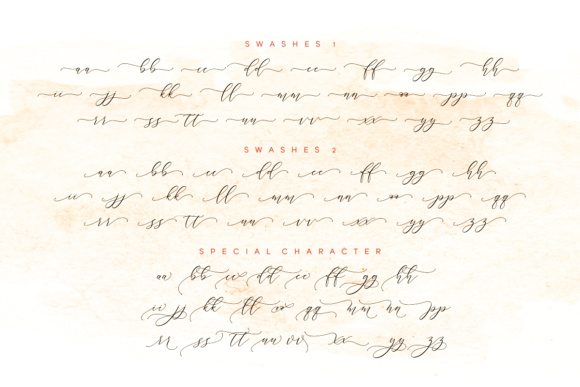 SWASHES 1
aa bb cc dd ee ff gg hh
ii jj kk ll mm nn oo pp qq
rr ss tt uu vv xx yy zz
SWASHES 2
aa bb cc dd ee ff gg hh
ii jj kk ll mm nn oo pp qq
rr ss tt uu vv xx yy zz
SPECIAL CHARACTER
aa bb cc dd ee ff gg hh
ii jj kk ll oo qq mm nn pp
rr ss tt uu vv xx yy zz